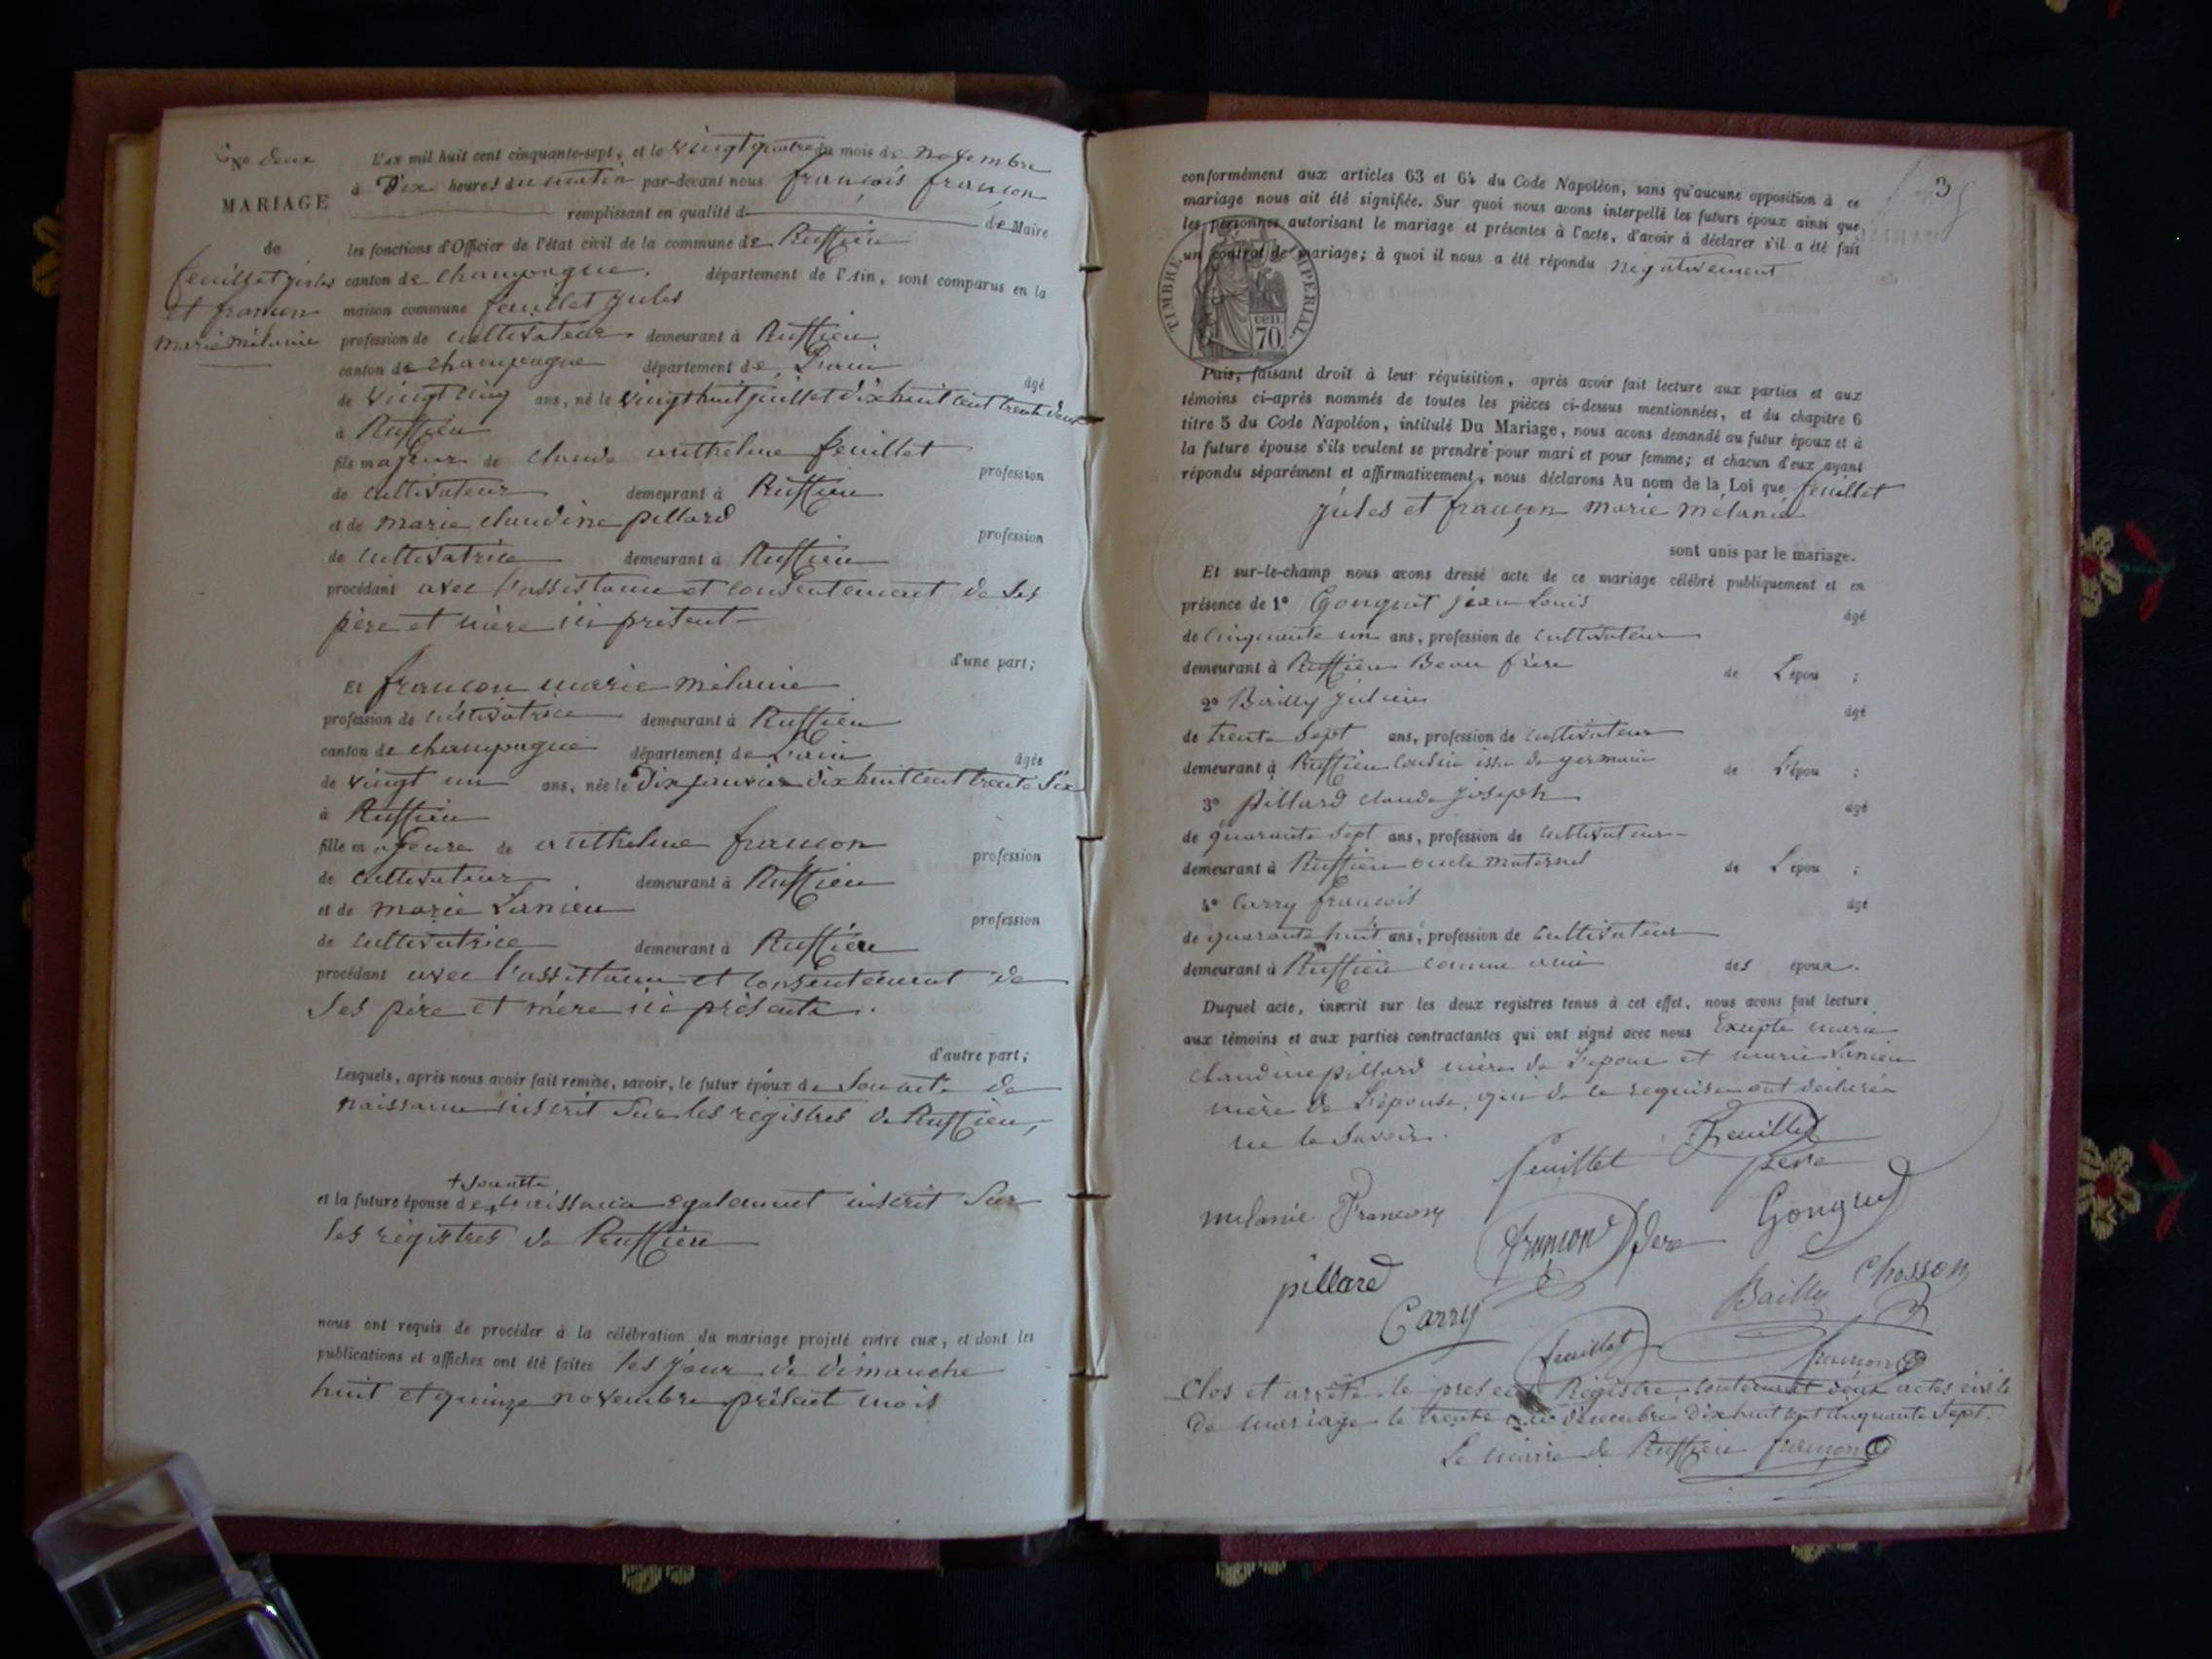 No deux
MARIAGE
de
feuillet jules
et françon
marie mélanie
L'an mil huit cent cinquante-sept, et le vingt quatre du mois de novembre
à Dix heures du matin par-devant nous françois françon
remplissant en qualité de Maire
les fonctions d'Officier de l'état civil de la commune de Ruffieu
canton de champagne, département de l'Ain, sont comparus en la
maison commune feuillet jules
profession de cultivateur demeurant à Ruffieu
canton de champagne département de L'ain
âgé
de vingt cinq ans, né le vingt huit juillet dix huit cent trente deux
à Ruffieu
fils majeur de claude anthelme feuillet
profession
de cultivateur demeurant à Ruffieu
et de marie claudine pillard
profession
de cultivatrice demeurant à Ruffieu
procédant avec l'assistance et consentement de ses
père et mère ici présent
d'une part;
Et françon marie mélanie
profession de cultivatrice demeurant à Ruffieu
canton de champagne département de L'ain
âgée
de vingt un ans, née le Dix janvier dix huit cent trente six
à Ruffieu
fille majeure de anthelme françon
profession
de cultivateur demeurant à Ruffieu
et de marie Lanieu
profession
de cultivatrice demeurant à Ruffieu
procédant avec l'assistance et consentement de
ses père et mère ici présents.
d'autre part;
Lesquels, après nous avoir fait remise, savoir, le futur époux de son acte de
naissance inscrit sur les registres de Ruffieu,
+ son acte
et la future épouse de + naissance egalement inscrit sur
les registres de Ruffieu
nous ont requis de procéder à la célébration du mariage projeté entre eux, et dont les
publications et affiches ont été faites les jour de dimanche
huit et quinze novembre présent mois
3
conformément aux articles 63 et 64 du Code Napoléon, sans qu'aucune opposition à ce
mariage nous ait été signifiée. Sur quoi nous avons interpellé les futurs époux ainsi que
les personnes autorisant le mariage et présentes à l'acte, d'avoir à déclarer s'il a été fait
un contrat de mariage; à quoi il nous a été répondu négativement
TIMBRE IMPERIAL
cen.
70.
Puis, faisant droit à leur réquisition, après avoir fait lecture aux parties et aux
témoins ci-après nommés de toutes les pièces ci-dessus mentionnées, et du chapitre 6
titre 5 du Code Napoléon, intitulé Du Mariage, nous avons demandé au futur époux et à
la future épouse s'ils veulent se prendre pour mari et pour femme; et chacun d'eux ayant
répondu séparément et affirmativement, nous déclarons Au nom de la Loi que feuillet
jules et françon marie mélanie
sont unis par le mariage.
Et sur-le-champ nous avons dressé acte de ce mariage célébré publiquement et en
présence de 1° Gonguet jean Louis
âgé
de cinquante un ans, profession de cultivateur
demeurant à Ruffieu Beau frère de L'épou ;
2° Bailly julien
âgé
de trente sept ans, profession de cultivateur
demeurant à Ruffieu cousin issu de germain de L'épou ;
3° pillard claude joseph
âgé
de quarante sept ans, profession de cultivateur
demeurant à Ruffieu oncle maternel de L'épou ;
4° Carry françois
âgé
de quarante huit ans, profession de cultivateur
demeurant à Ruffieu comme ami des époux.
Duquel acte, inscrit sur les deux registres tenus à cet effet, nous avons fait lecture
aux témoins et aux parties contractantes qui ont signé avec nous Excepté marie
claudine pillard mère de L'epoux et marie Lanieu
mère de L'épouse, qui de ce requises ont déclaré
ne le savoir.
feuillet feuillet
père
melanie Françon françon père Gonguet
pillard Carry Bailly Chosson
feuillet françon
Clos et arrêté le present Registre contenant deux actes civils
de mariage le trente décembre dix huit cent cinquante sept.
Le maire de Ruffieu françon